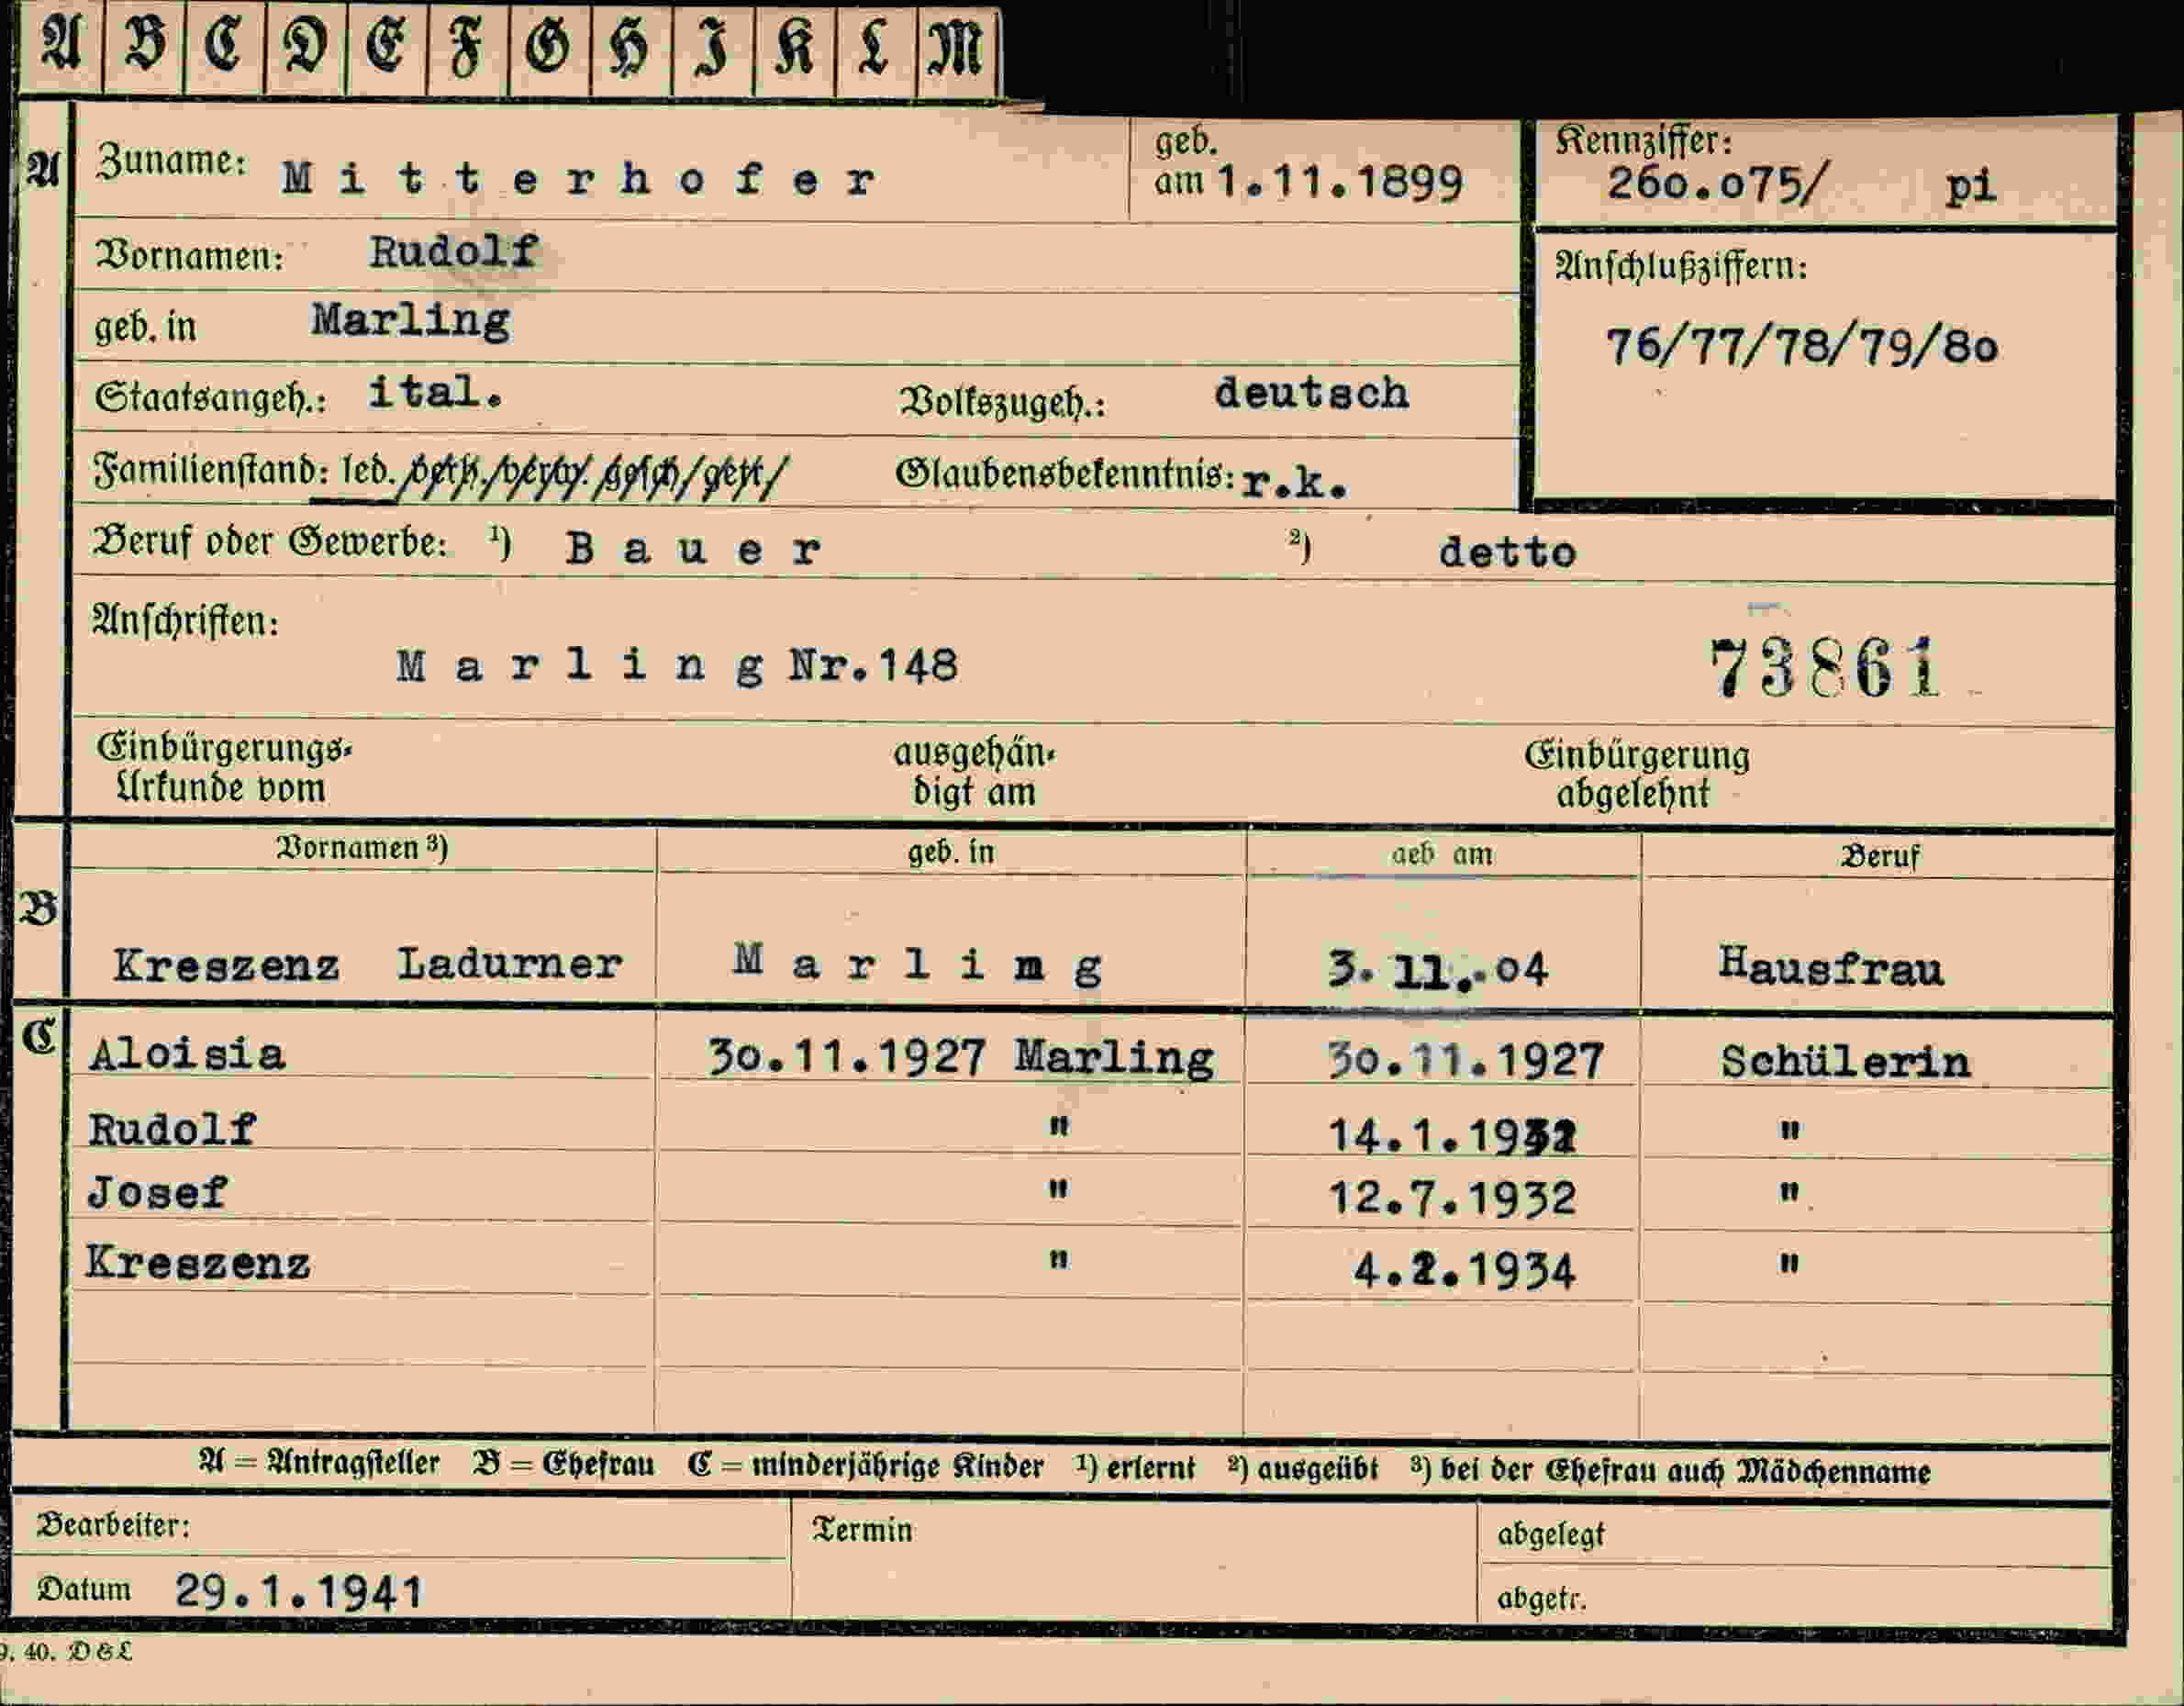 A B C D E F G H I K L M
A
Zuname: Mitterhofer
geb. am 1.11.1899
Kennziffer:
260.075/ pi
Vornamen: Rudolf
Anschlußziffern:
76/77/78/79/80
geb. in Marling
Staatsangeh.: ital. Volkszugeh.: deutsch
Familienstand: led. Glaubensbekenntnis: r.k.
Beruf oder Gewerbe: ¹) Bauer ²) detto
Anschriften:
Marling Nr.148
73861
Einbürgerungs-
Urkunde vom
ausgehän-
digt am
Einbürgerung
abgelehnt
Vornamen ³) geb. in geb am Beruf
B
Kreszenz Ladurner Marlimg 3.11..04 Hausfrau
C
Aloisia 30.11.1927 Marling 30.11.1927 Schülerin
Rudolf " 14.1. "
Josef " 12.7.1932 "
Kreszenz " 4.2.1934 "
A = Antragsteller B = Ehefrau C = minderjährige Kinder ¹) erlernt ²) ausgeübt ³) bei der Ehefrau auch Mädchenname
Bearbeiter:
Termin
abgelegt
Datum 29.1.1941
abgetr.
9. 40. D&L